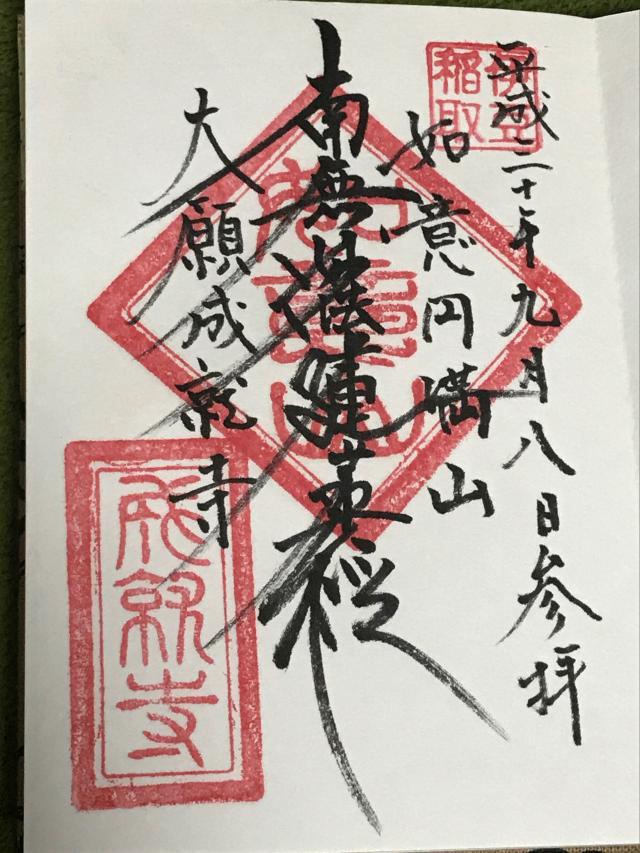 平成三十年九月八日参拝
伊豆
稲取
如意円満山
南無妙法蓮華経
如意山
大願成就寺
成就寺